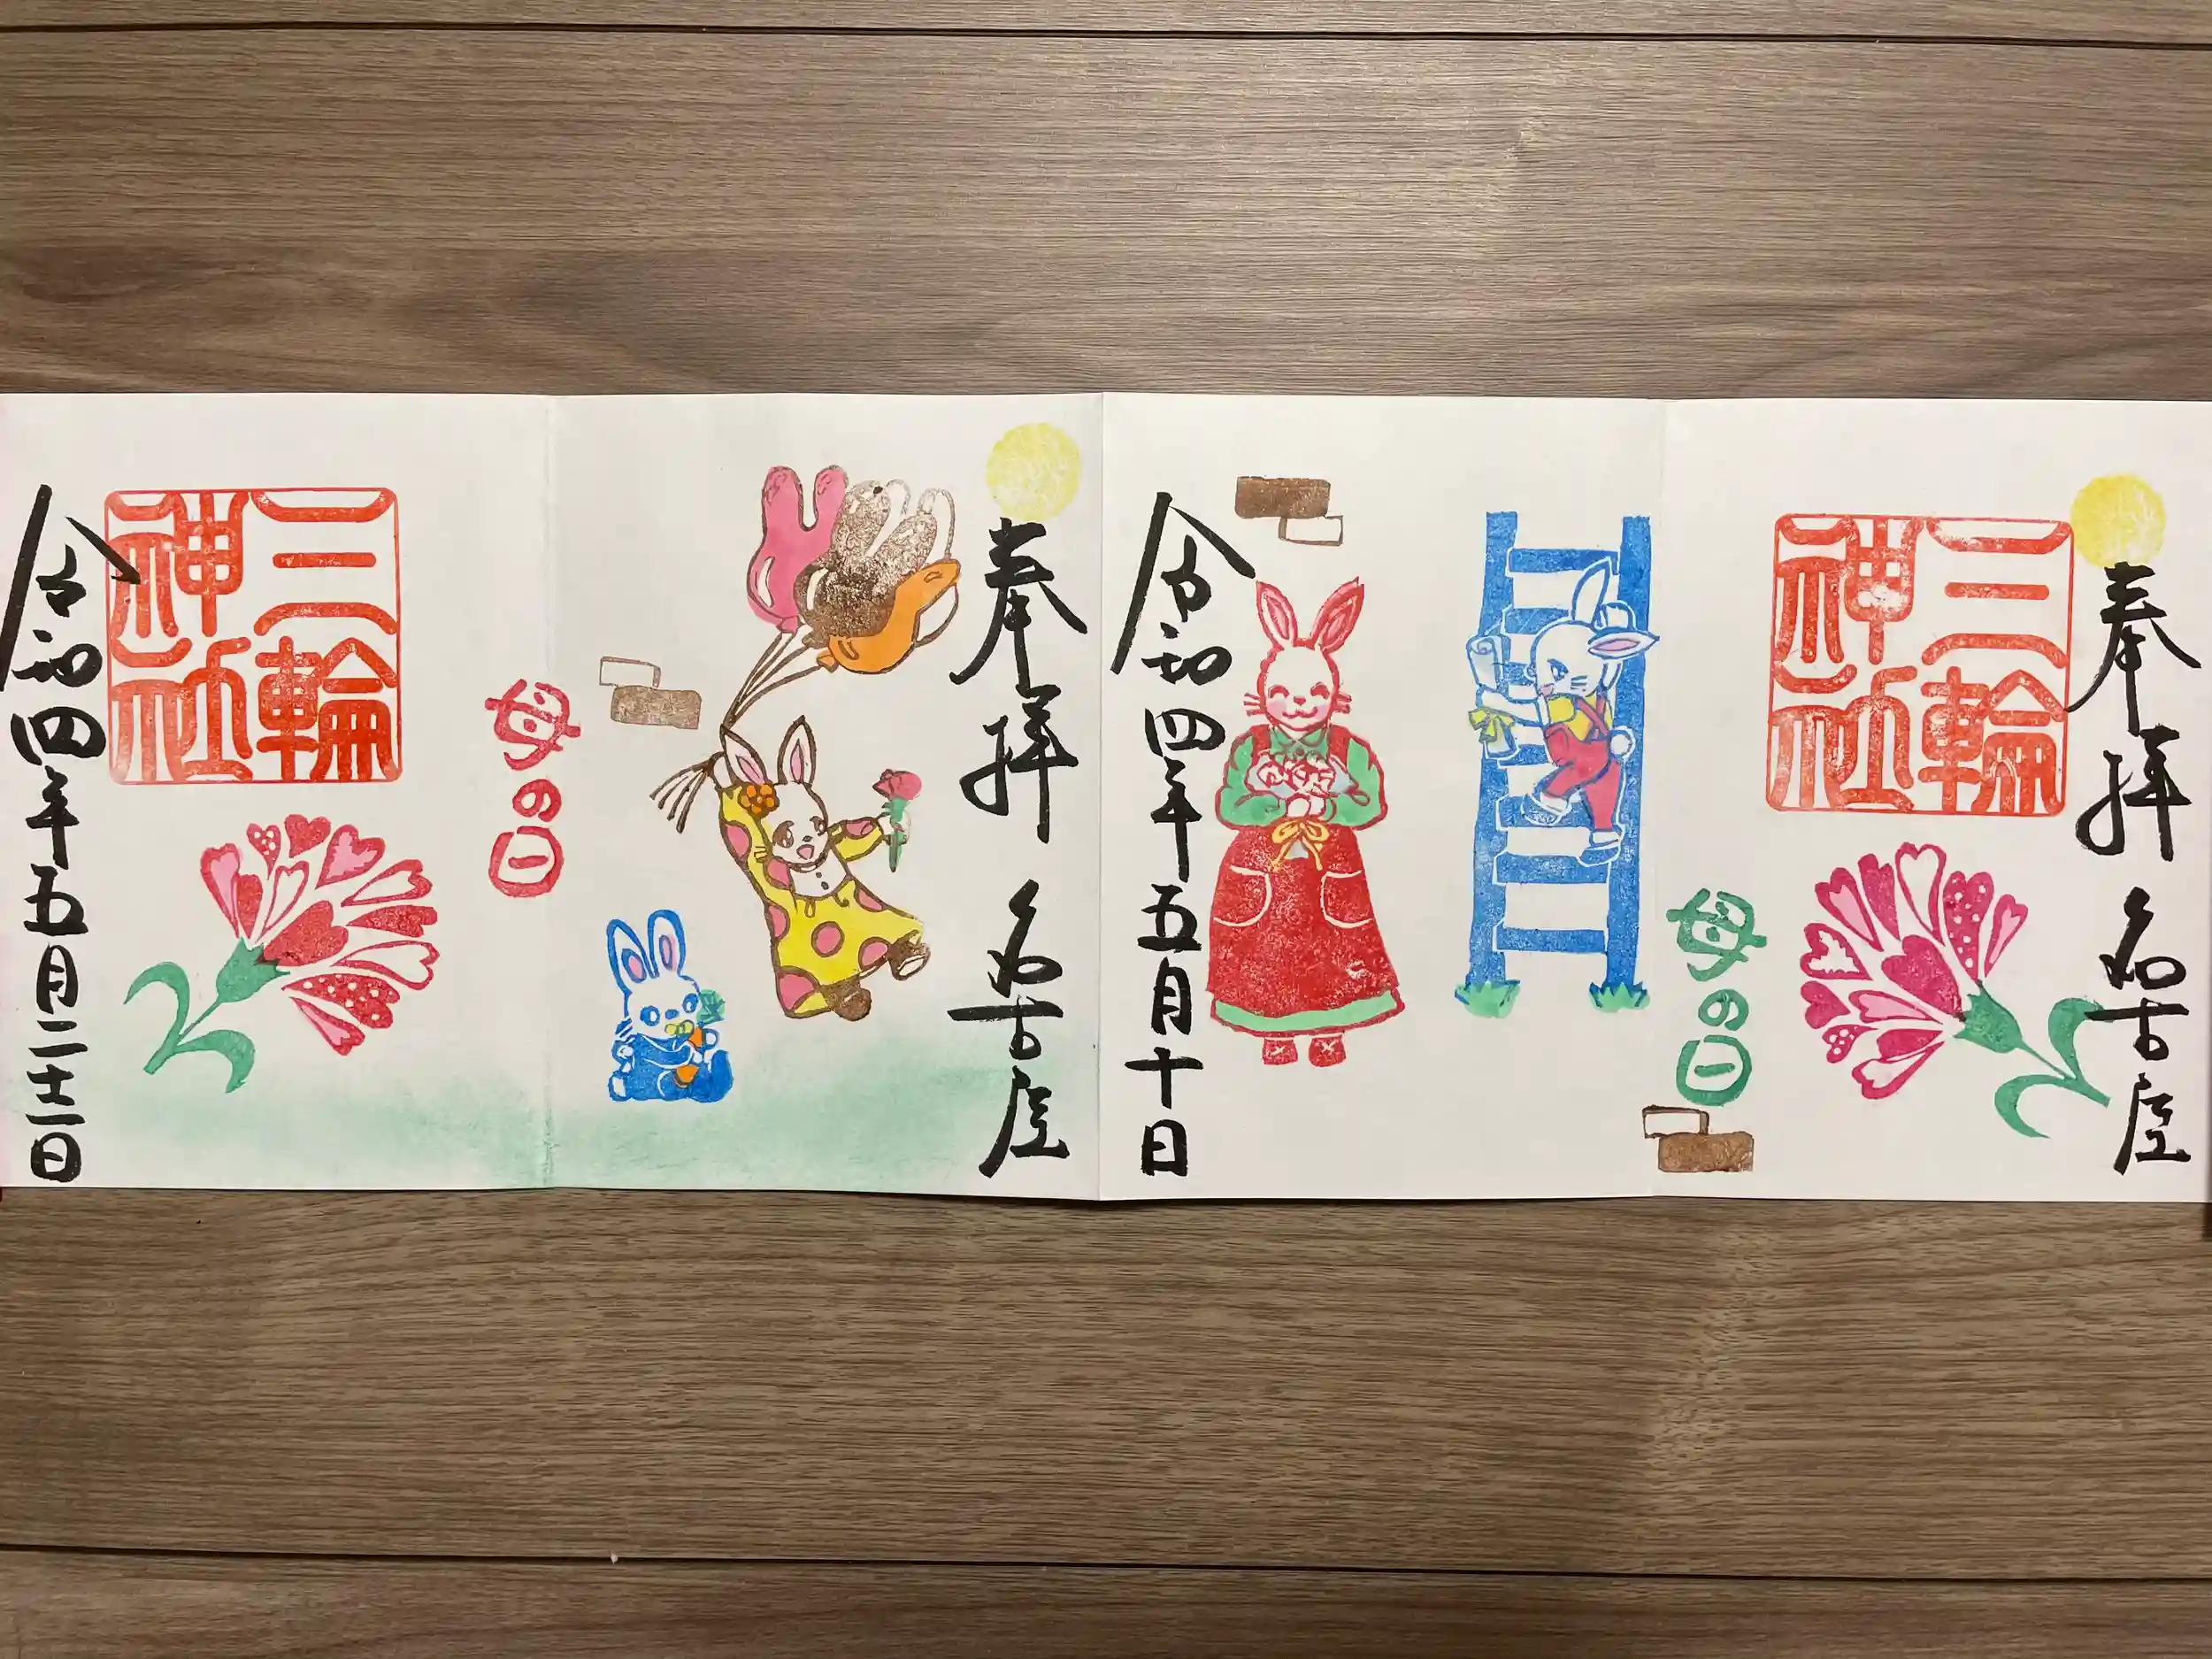 奉拝 名古屋
三輪神社
母の日
令和四年五月十日
奉拝 名古屋
母の日
三輪神社
令和四年五月二十二日